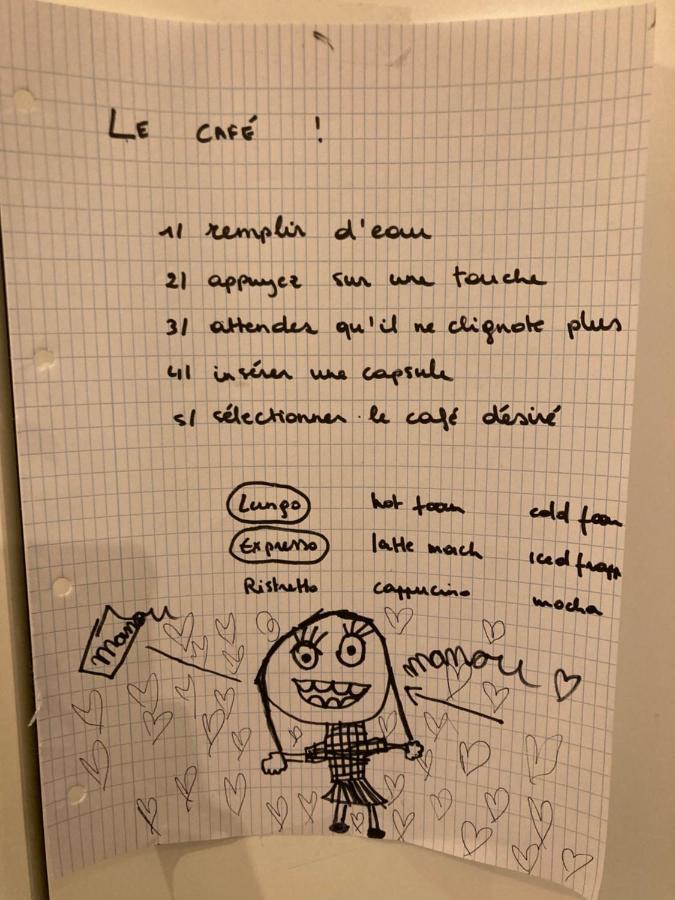 LE CAFÉ !
1/ remplir d'eau
2/ appuyez sur une touche
3/ attendez qu'il ne clignote plus
4/ insérer une capsule
5/ sélectionner le café désiré
Lungo hot foam cold foam
Expresso latte mach Iced frapp
Ristretto cappucino mocha
Manou
manou